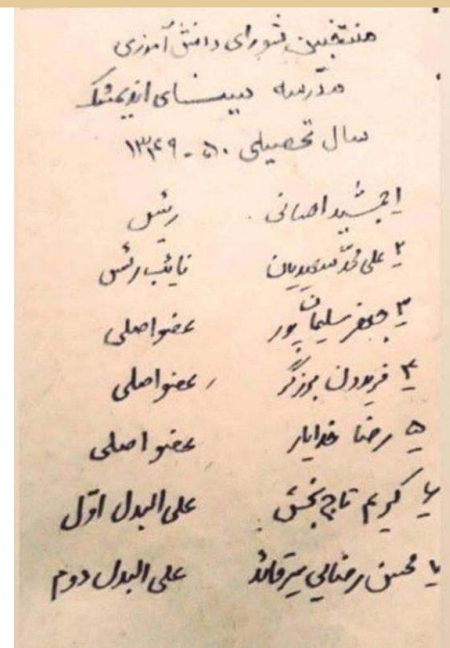 منتخبین شورای دانش آموزی
مدرسه سینای اندیمشک
سال تحصیلی ۵۰-۱۳۴۹
۱ جمشید امانی رئیس
۲ علی محمد سعیدیان نائب رئیس
۳ جعفر سلیمان پور عضو اصلی
۴ فریدون برزگر عضو اصلی
۵ رضا خدایار عضو اصلی
۶ کریم تاج بخش علی البدل اول
۷ محسن رضایی میرقائد علی البدل دوم